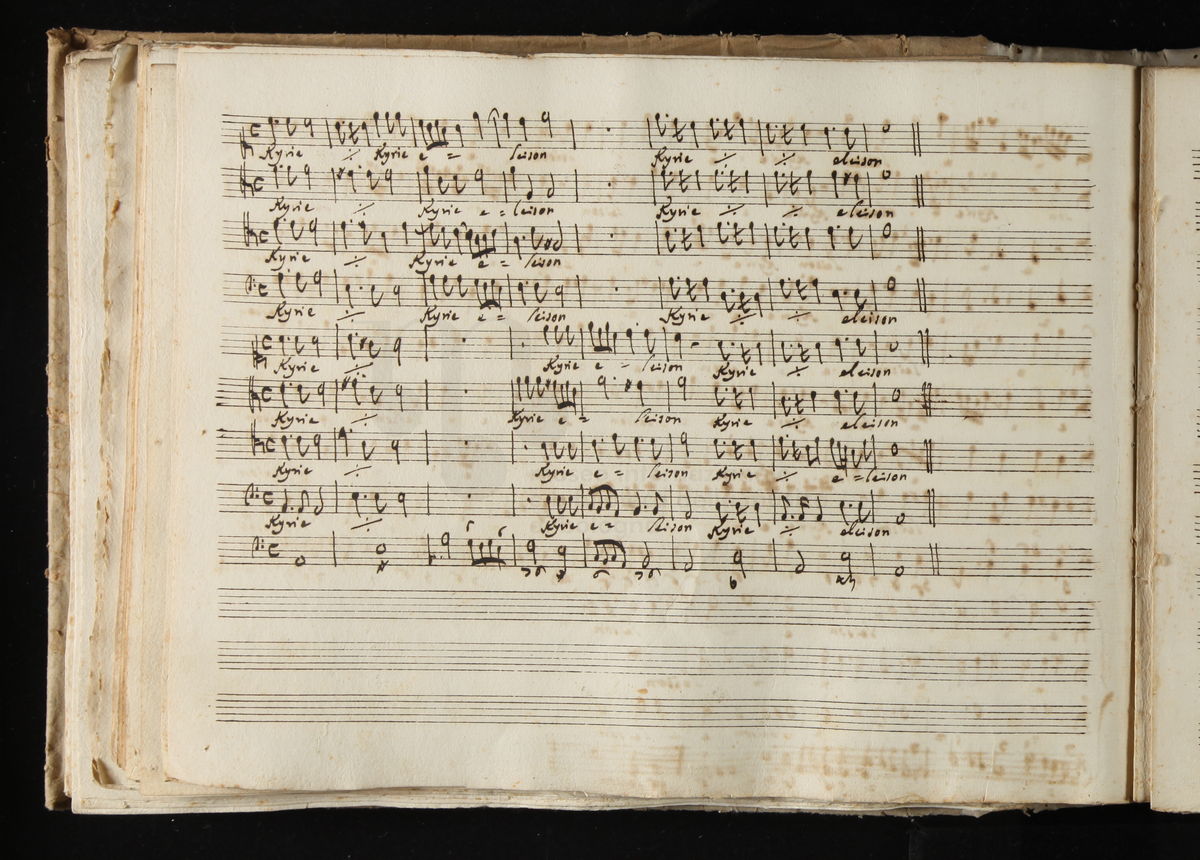 Kyrie ·/· Kyrie e = leison Kyrie ·/· ·/· eleison
Kyrie ·/· Kyrie e = leison Kyrie ·/· ·/· eleison
Kyrie ·/· Kyrie e = leison
Kyrie ·/· Kyrie e = leison Kyrie ·/· ·/· eleison
Kyrie ·/· Kyrie e = leison Kyrie ·/· eleison
Kyrie ·/· Kyrie e = leison Kyrie ·/· eleison
Kyrie ·/· Kyrie e = leison Kyrie ·/· e = leison
Kyrie ·/· Kyrie e = leison Kyrie ·/· eleison